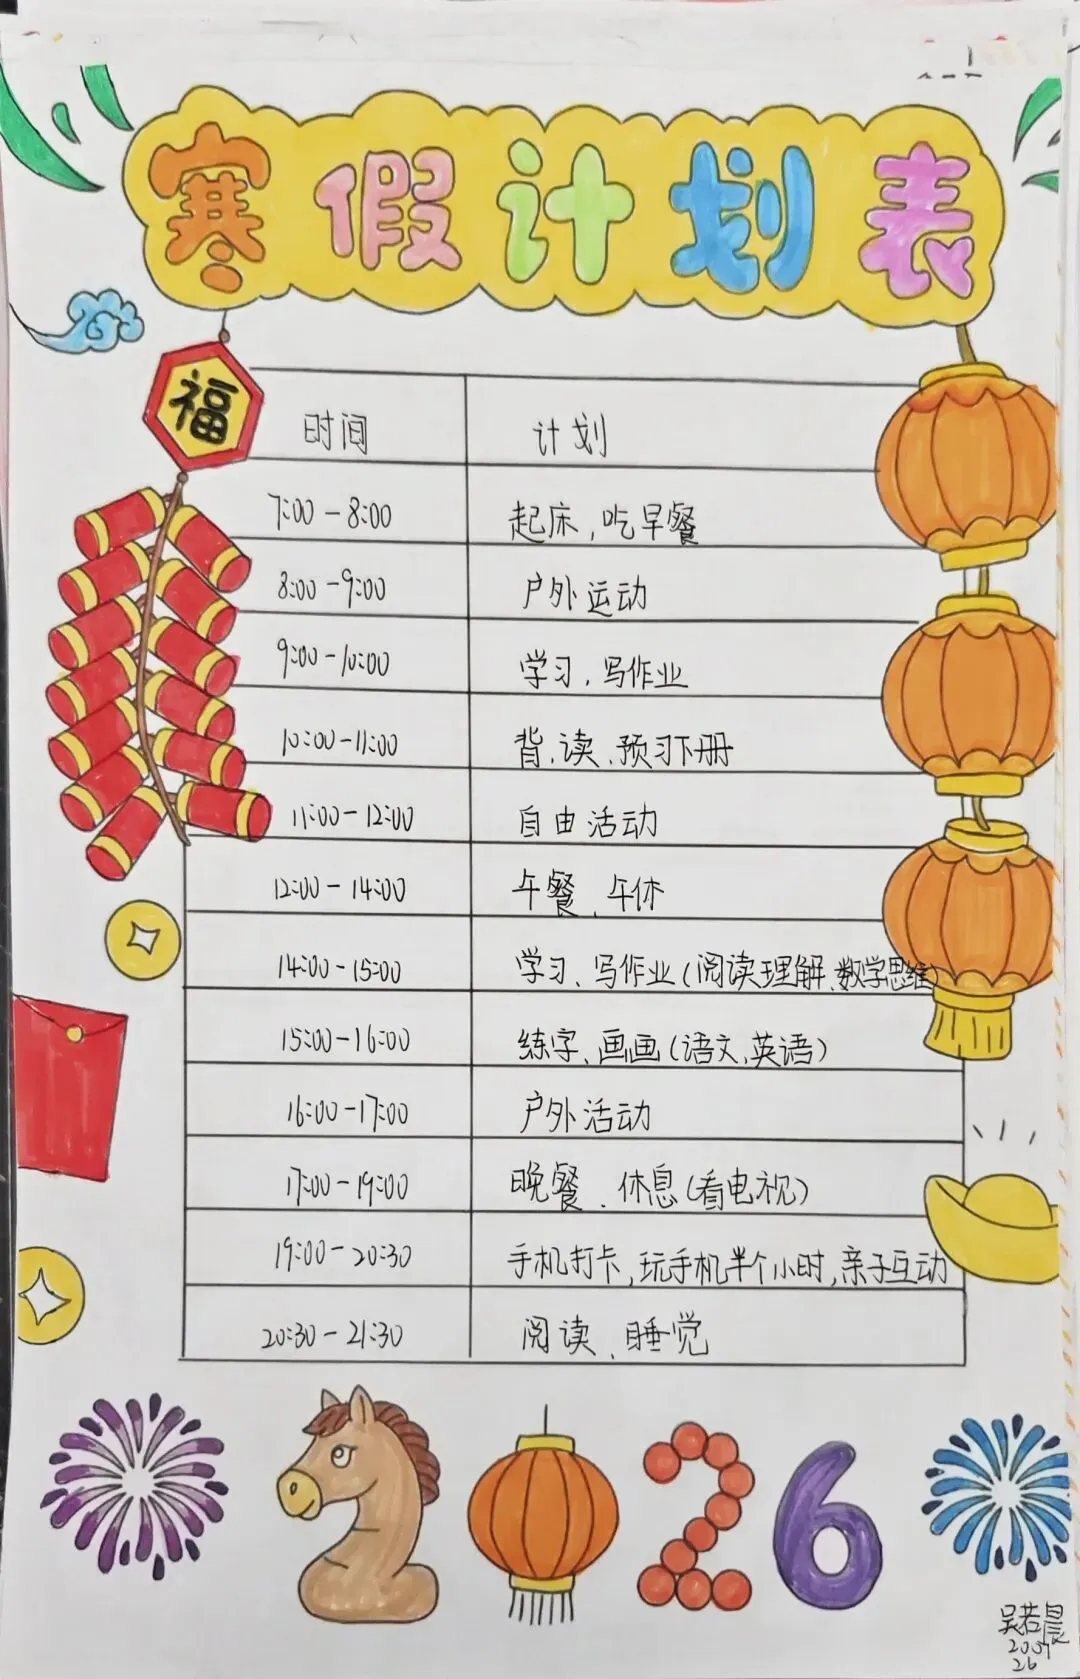 寒假计划表
福
时间 计划
7:00-8:00 起床,吃早餐
8:00-9:00 户外运动
9:00-10:00 学习、写作业
10:00-11:00 背、读、预习下册
11:00-12:00 自由活动
12:00-14:00 午餐、午休
14:00-15:00 学习、写作业(阅读理解、数学思维)
15:00-16:00 练字、画画(语文、英语)
16:00-17:00 户外活动
17:00-19:00 晚餐、休息(看电视)
19:00-20:30 手机打卡,玩手机半个小时,亲子互动
20:30-21:30 阅读、睡觉
2026
吴若晨
26